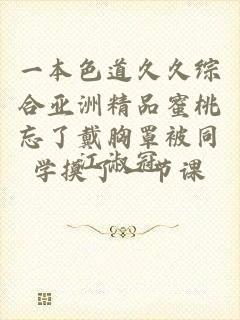 一本色道久久综
合亚洲精品蜜桃
忘了戴胸罩被同
学摸了一节课
江淑冠